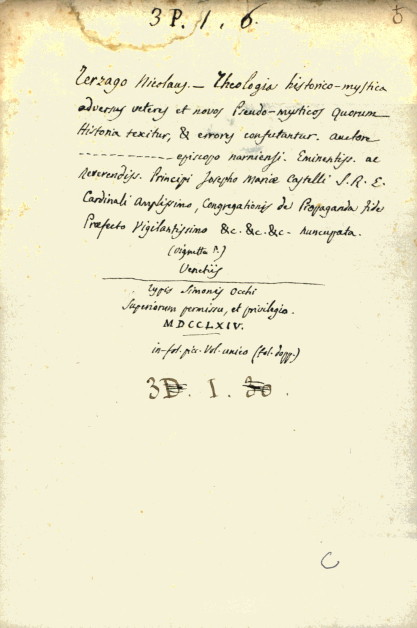 3 P. 1. 6.
Terzago Nicolaus. — Theologia historico-mystica
adversus veteres et novos Pseudo-mysticos quorum
Historia texitur, & errores confutantur. auctore
---------------- episcopo narniensi. Eminentiss. ac
Reverendiss. Principi Josepho Mariæ Castelli S. R. E.
Cardinali Amplissimo, Congregationis de Propaganda Fide
Præfecto Vigilantissimo &c. &c. &c. nuncupata.
(vignetta)
Venetiis
Typis Simonis Occhi
Superiorum permissu, et privilegio.
MDCCLXIV.
in-fol. picc. Vol. unico (fol. dopp.)
3 I.
C